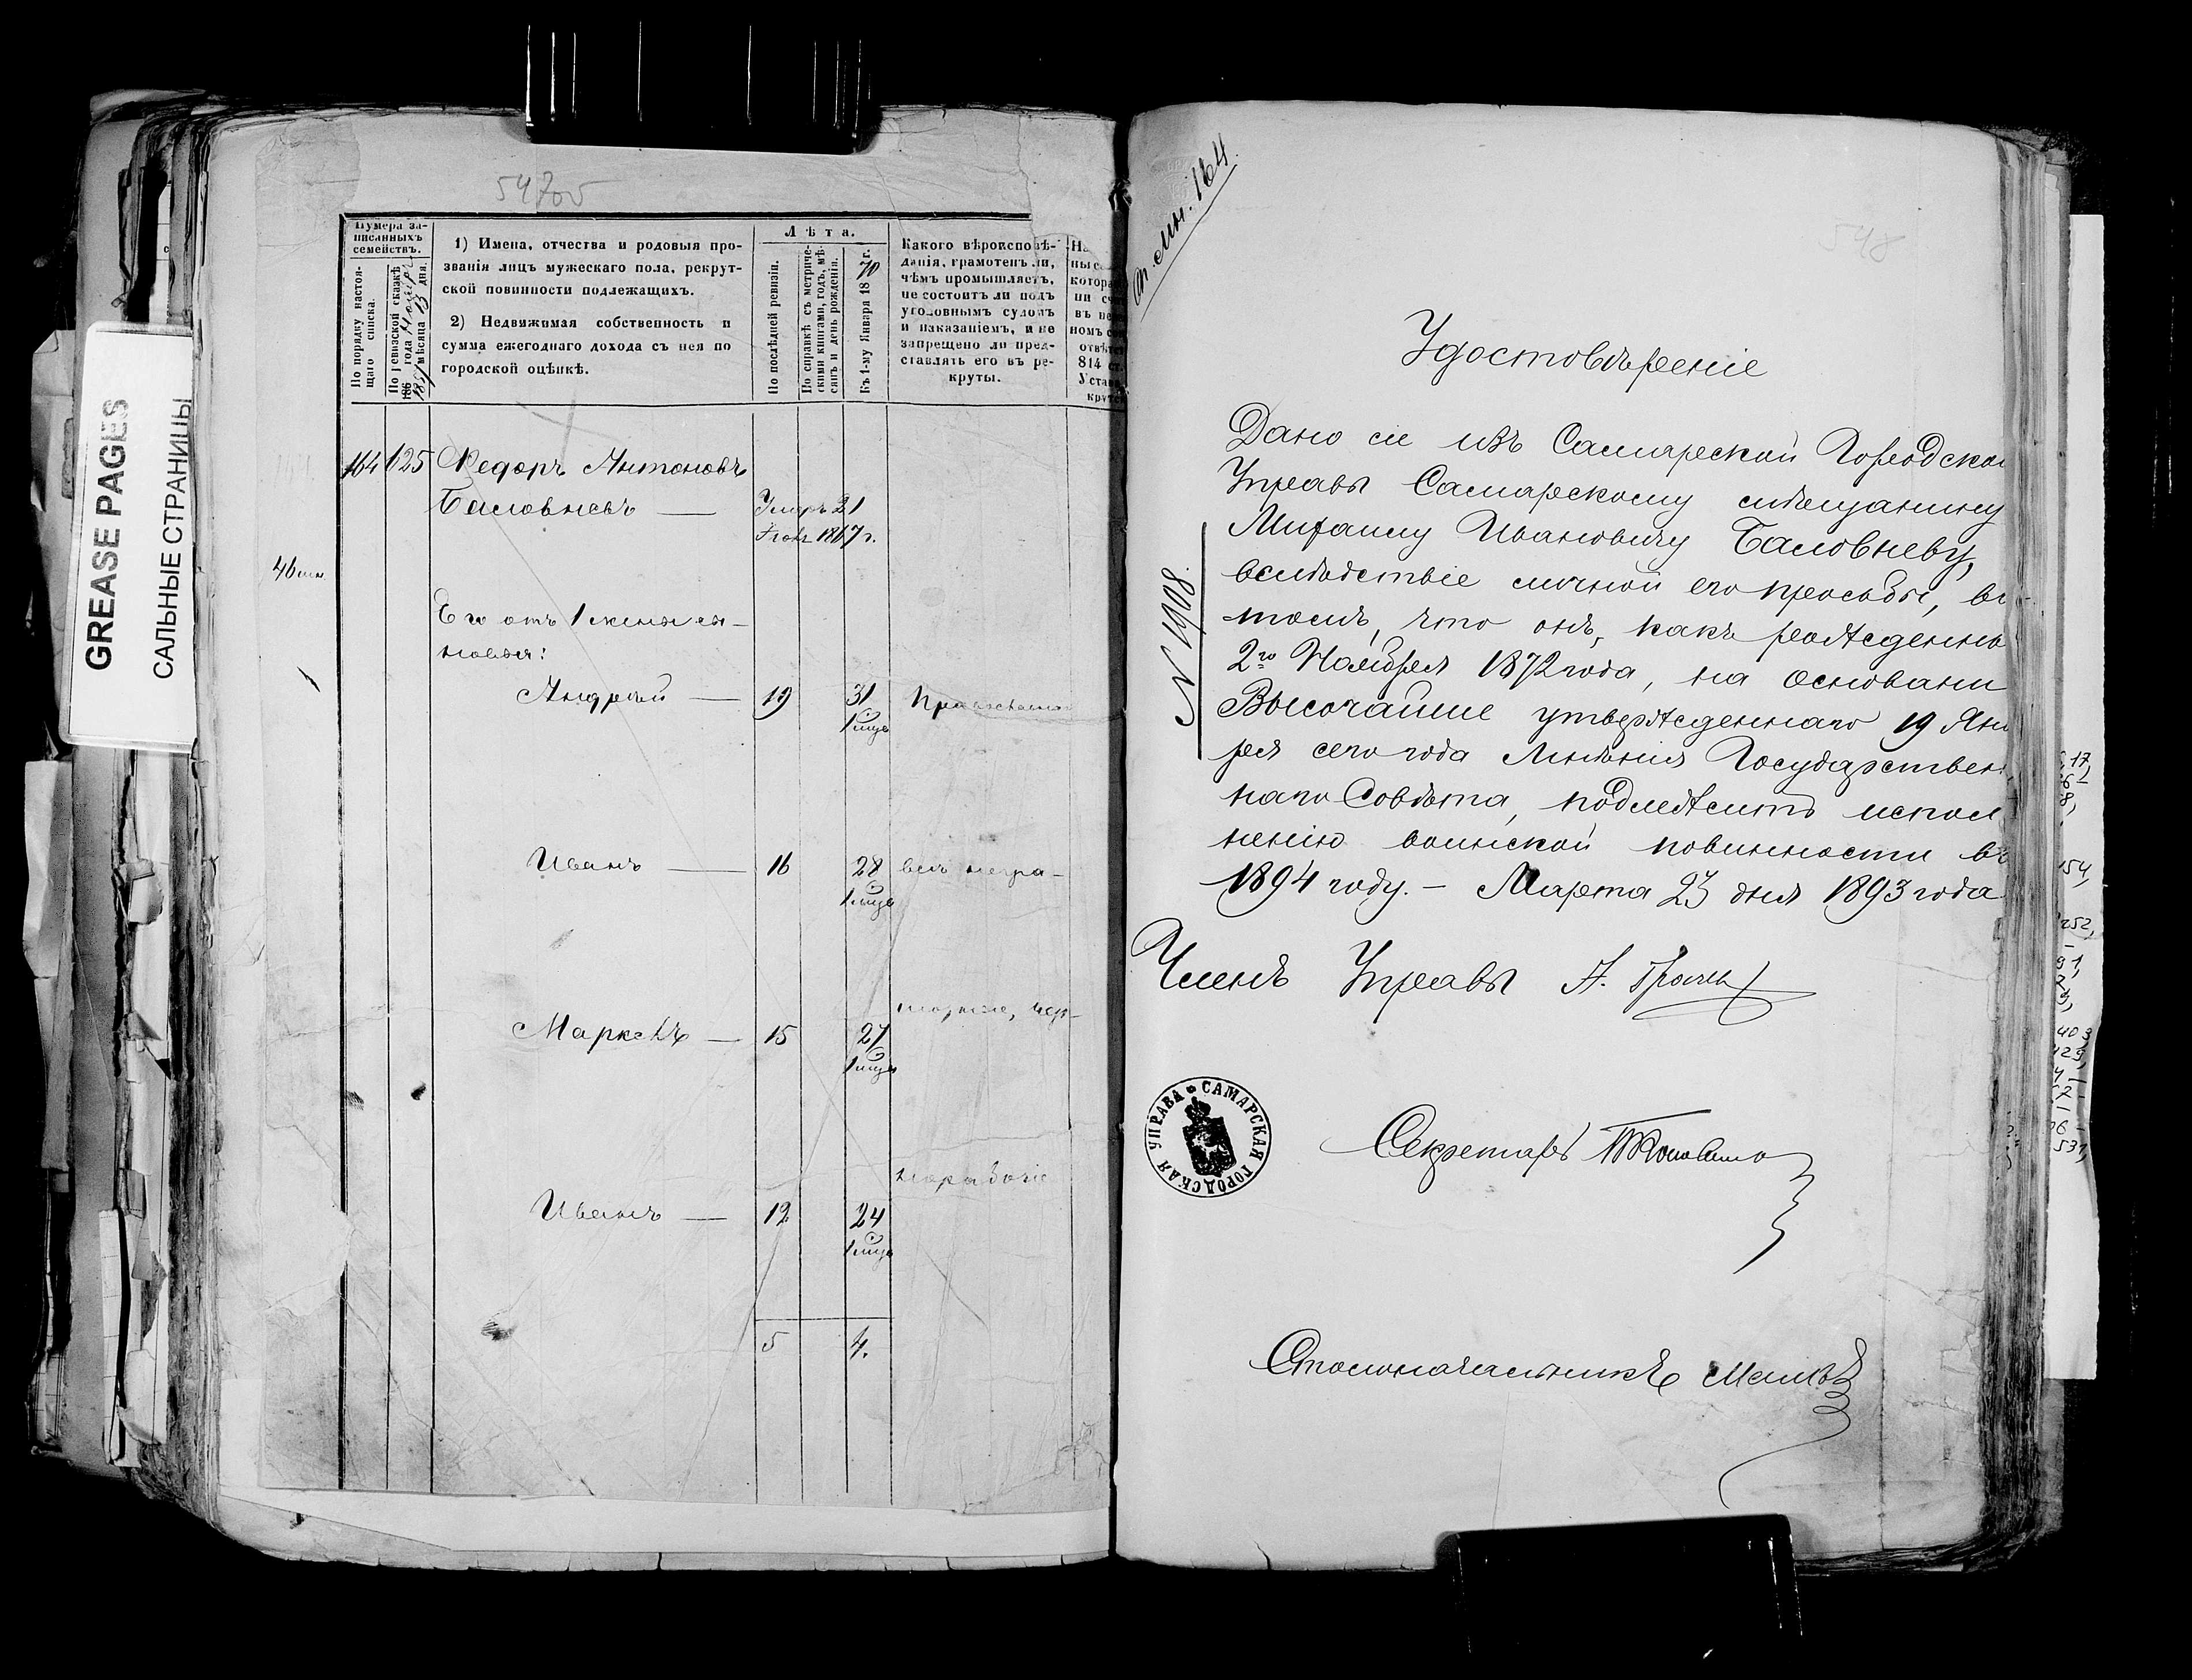 GREASE PAGES
САЛЬНЫЕ СТРАНИЦЫ
547об
Нумера за-
писанныхъ
семействъ.
По порядку настоя-
щаго списка.
По ревизской сказкѣ
186 года Ноября
1851 мѣсяца 13 дня.
1) Имена, отчества и родовыя про-
званія лицъ мужескаго пола, рекрут-
ской повинности подлежащихъ.
2) Недвижимая собственность и
сумма ежегоднаго дохода съ нея по
городской оцѣнкѣ.
Лѣта.
По послѣдней ревизіи.
По справкѣ съ метриче-
скими книгами, годъ, мѣ-
сяцъ и день рожденія.
Къ 1-му Января 1870 г.
Какого вѣроисповѣ-
данія, грамотенъ ли,
чѣмъ промышляетъ,
не состоитъ ли подъ
уголовнымъ судомъ
и наказаніемъ, и не
запрещено ли пред-
ставлять его въ ре-
круты.
814 ст.
164 125 Ѳедоръ Антоновъ
Баловневъ — Умеръ 21
1867 г.
46
Его отъ 1 жены сы-
новья:
Андрей — 19 31 Православные
1 лице
Иванъ — 16 28 всѣ негра-
1 лице
Маркелъ — 15 27 мотные, чер-
1 лице
норабочіе
Иванъ — 12 24
1 лице
5 4.
164.
548
Удостовѣреніе
Дано сіе изъ Самарской Городской
Управы Самарскому мѣщанину
Михаилу Ивановичу Баловневу,
вслѣдствіе личной его просьбы, въ
томъ, что онъ, какъ рожденны
2го Ноября 1872 года, на основани
Высочайше утвержденнаго 19 Янв
ря сего года Мнѣнія Государствен
наго Совѣта, подлежитъ испол
ненію воинской повинности въ
1894 году. — Марта 23 дня 1893 года
N 1908.
Членъ Управы А.
САМАРСКАЯ ГОРОДСКАЯ УПРАВА
Секретарь
Столоначальникъ